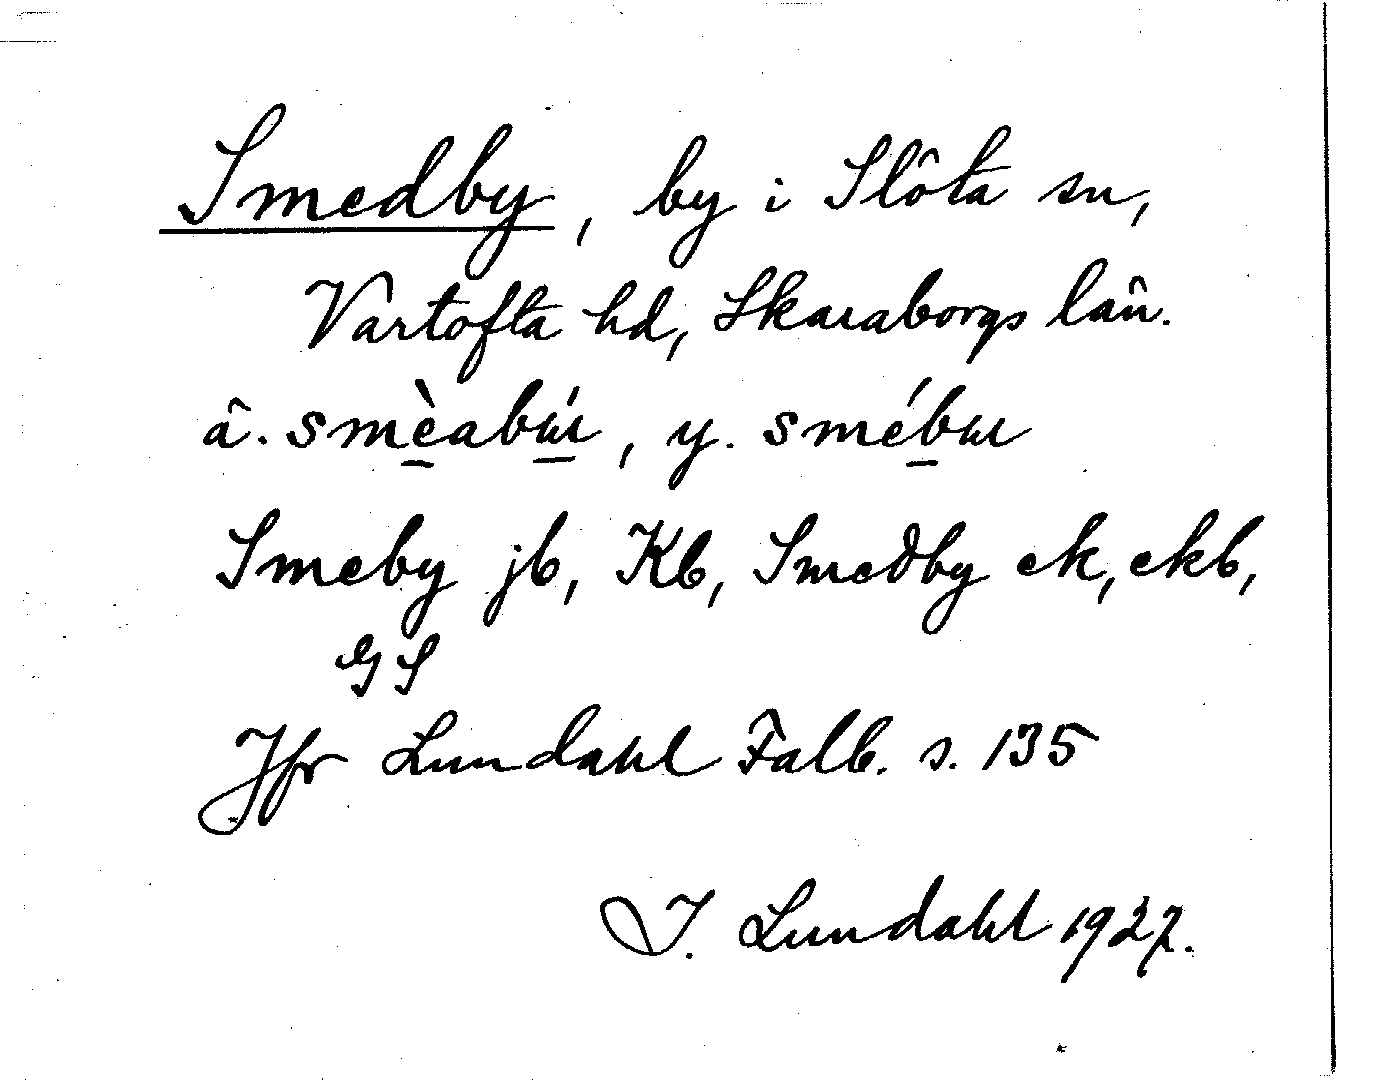 Smedby, by i Slöta sn,
Vartofta hd, Skaraborgs län.
ä. smèabúı, y. smébuı
Smeby jb, Kb, Smedby ek, ekb,
GS
Jfr Lundahl Falb. s. 135
I. Lundahl 1927.